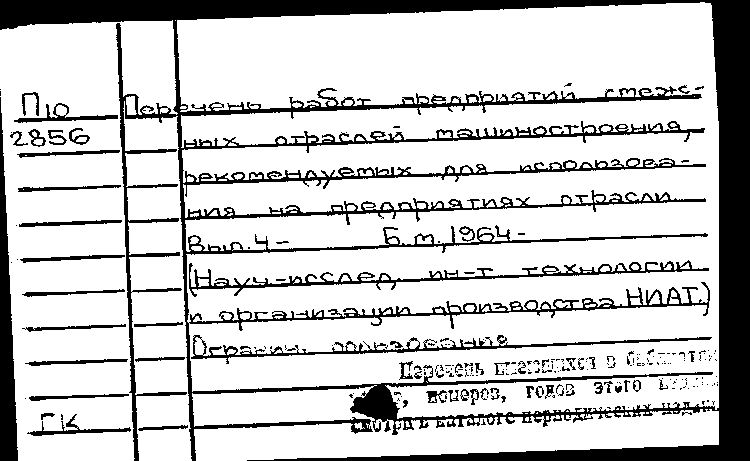 П10 Перечень работ предприятий смеж-
2856 ных отраслей машиностроения,
рекомендуемых для использова-
ния на предприятиях отрасли.
Вып. 4- Б.м., 1964-
(Науч.-исслед. ин-т технологии
и организации производства НИАТ.)
Огранич. пользования
Перечень имеющихся в библиотеке
номеров, годов этого
ГК смотри в каталоге периодических издан